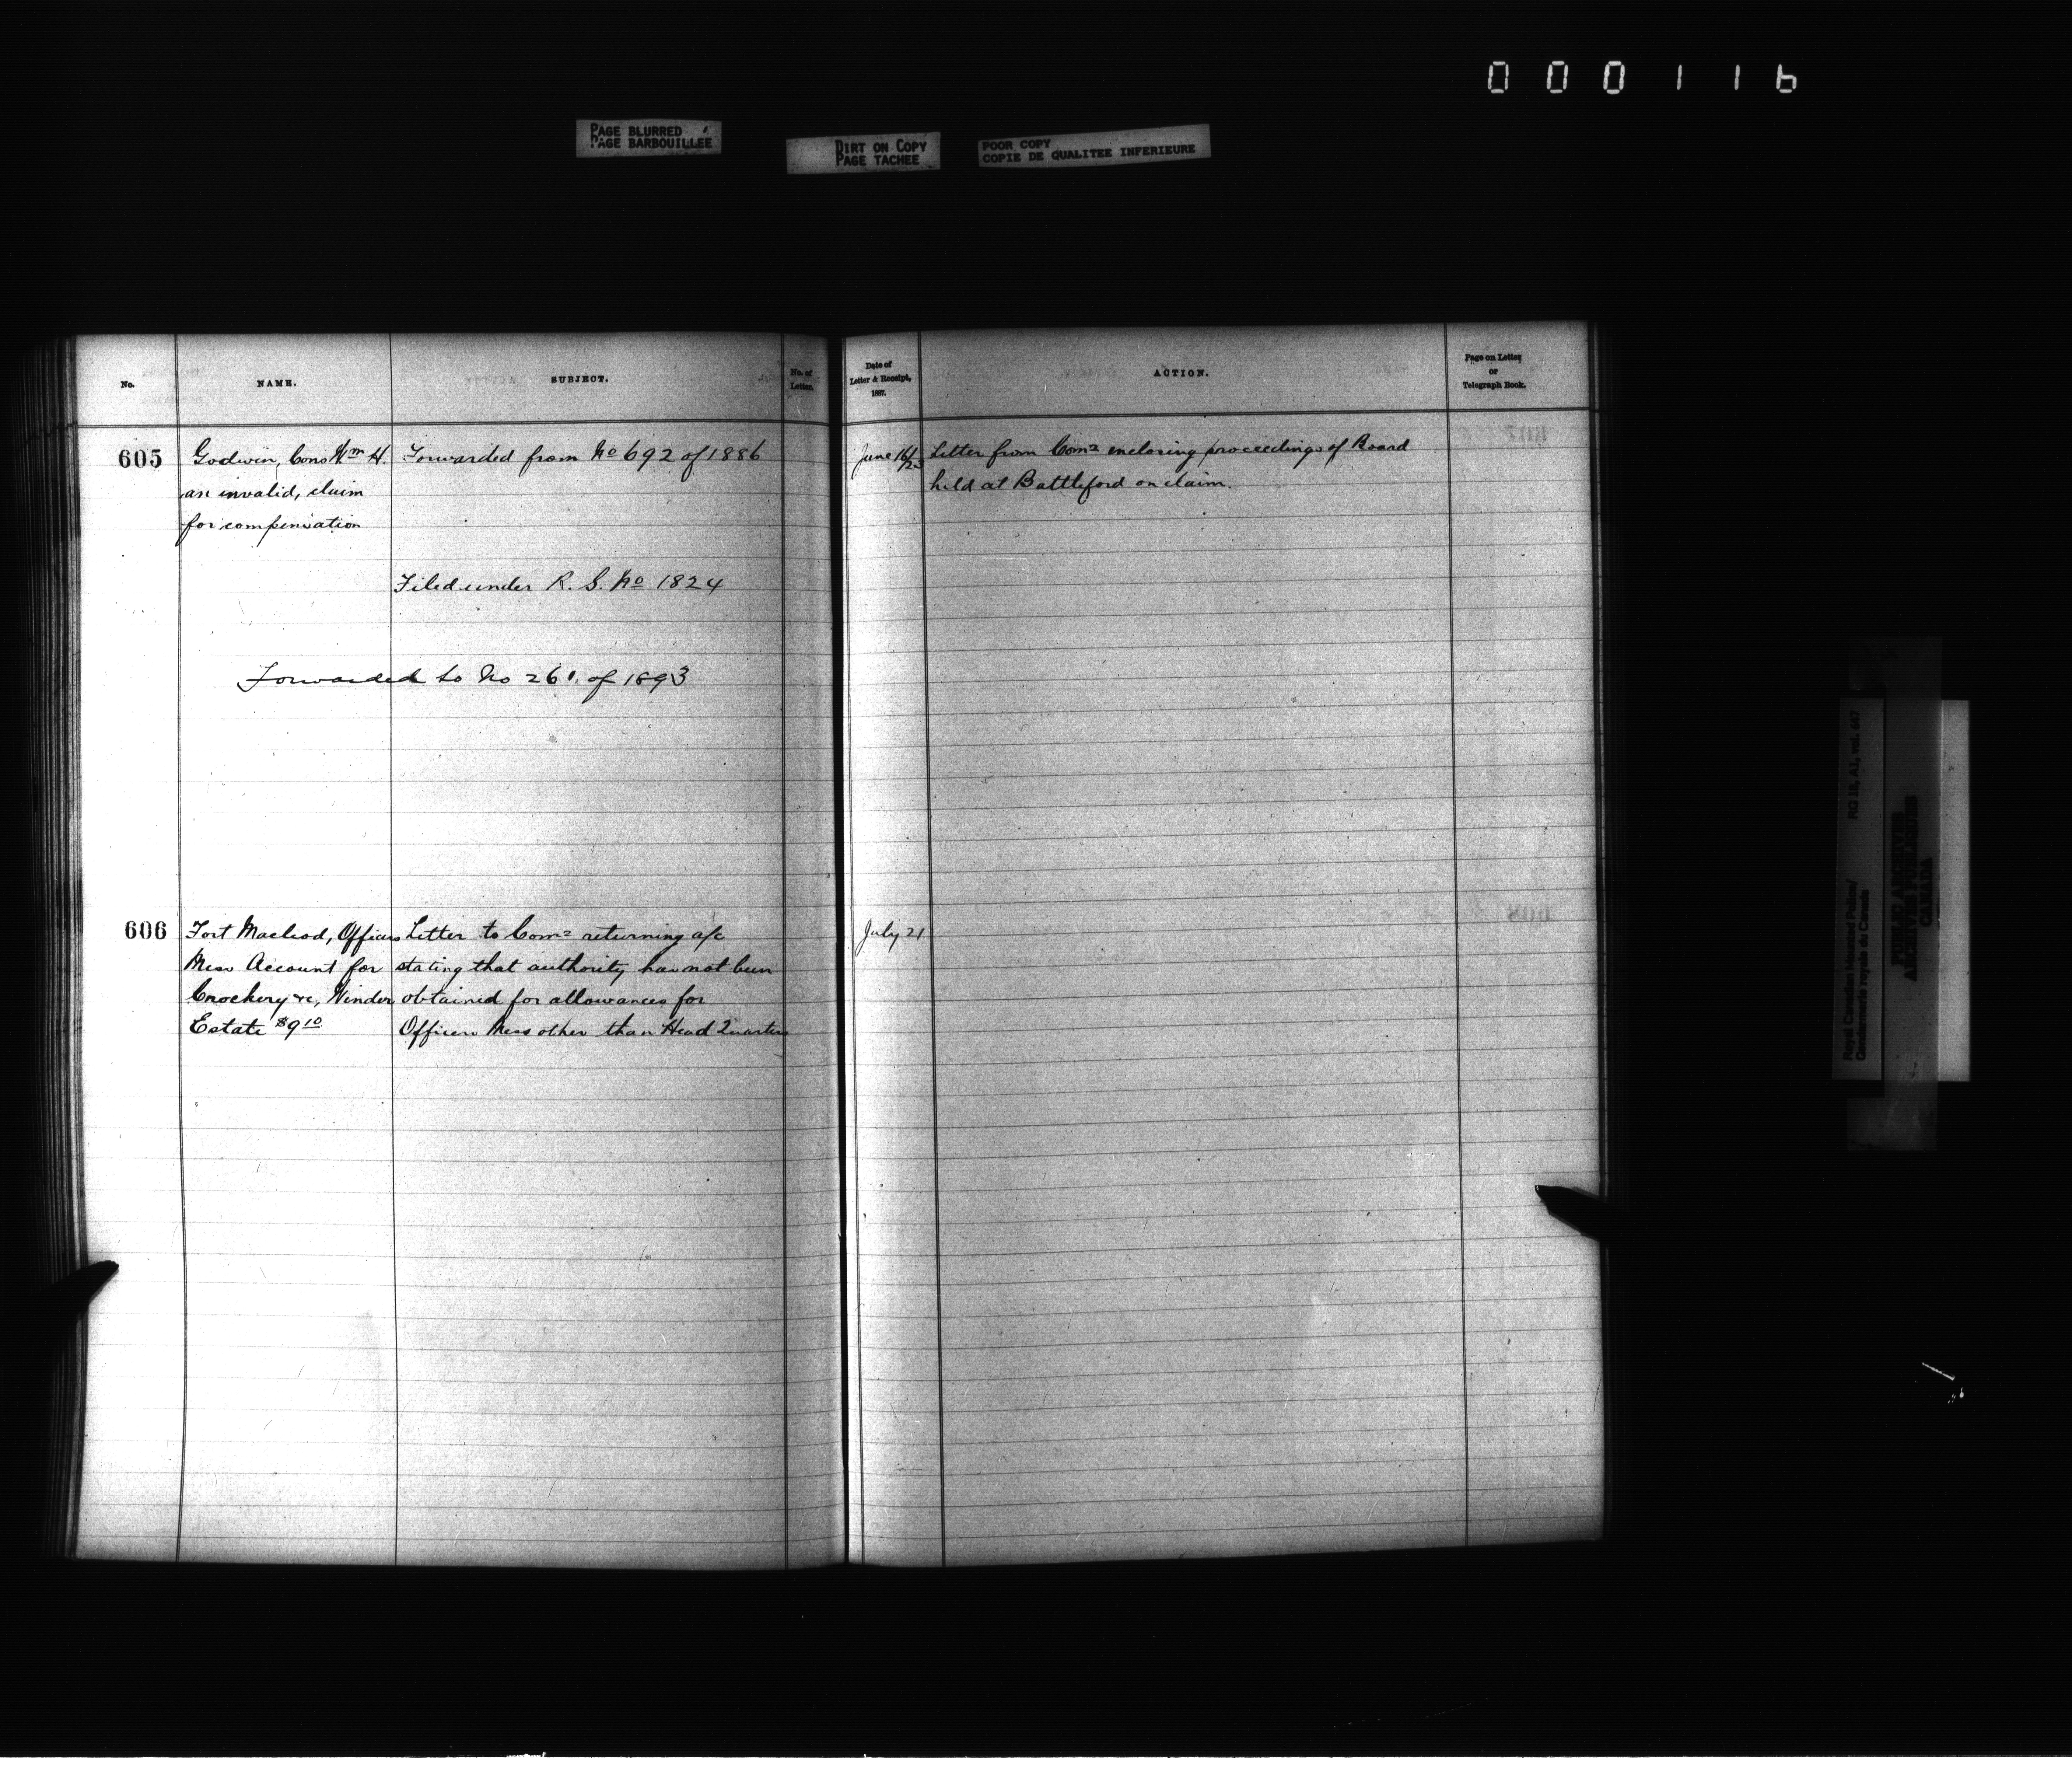 000116
PAGE BLURRED
PAGE BARBOUILLEE
DIRT ON COPY
PAGE TACHEE
POOR COPY
COPIE DE QUALITEE INFERIEURE
No.
NAME.
SUBJECT.
No. of
Letter.
Date of
Letter & Receipt,
1887.
ACTION.
Page on Letter
or
Telegraph Book.
605
Godwin, Cons Wm H.
an invalid, claim
for compensation
Forwarded from No 692 of 1886
Filed under R. S. No 1824
Forwarded to No 261. of 1893
June 16/23
Letter from Comr enclosing proceedings of Board
held at Battleford on claim.
606
Fort Macleod, Officers
Mess Account for
Crockery &c, Winder
Estate $9 10
Letter to Comr returning a/c
stating that authority has not been
obtained for allowances for
Officers Mess other than Head Quarters
July 21
Royal Canadian Mounted Police/
Gendarmerie royale du Canada
RG 18, A1, vol. 447
PUBLIC ARCHIVES
ARCHIVES PUBLIQUES
CANADA